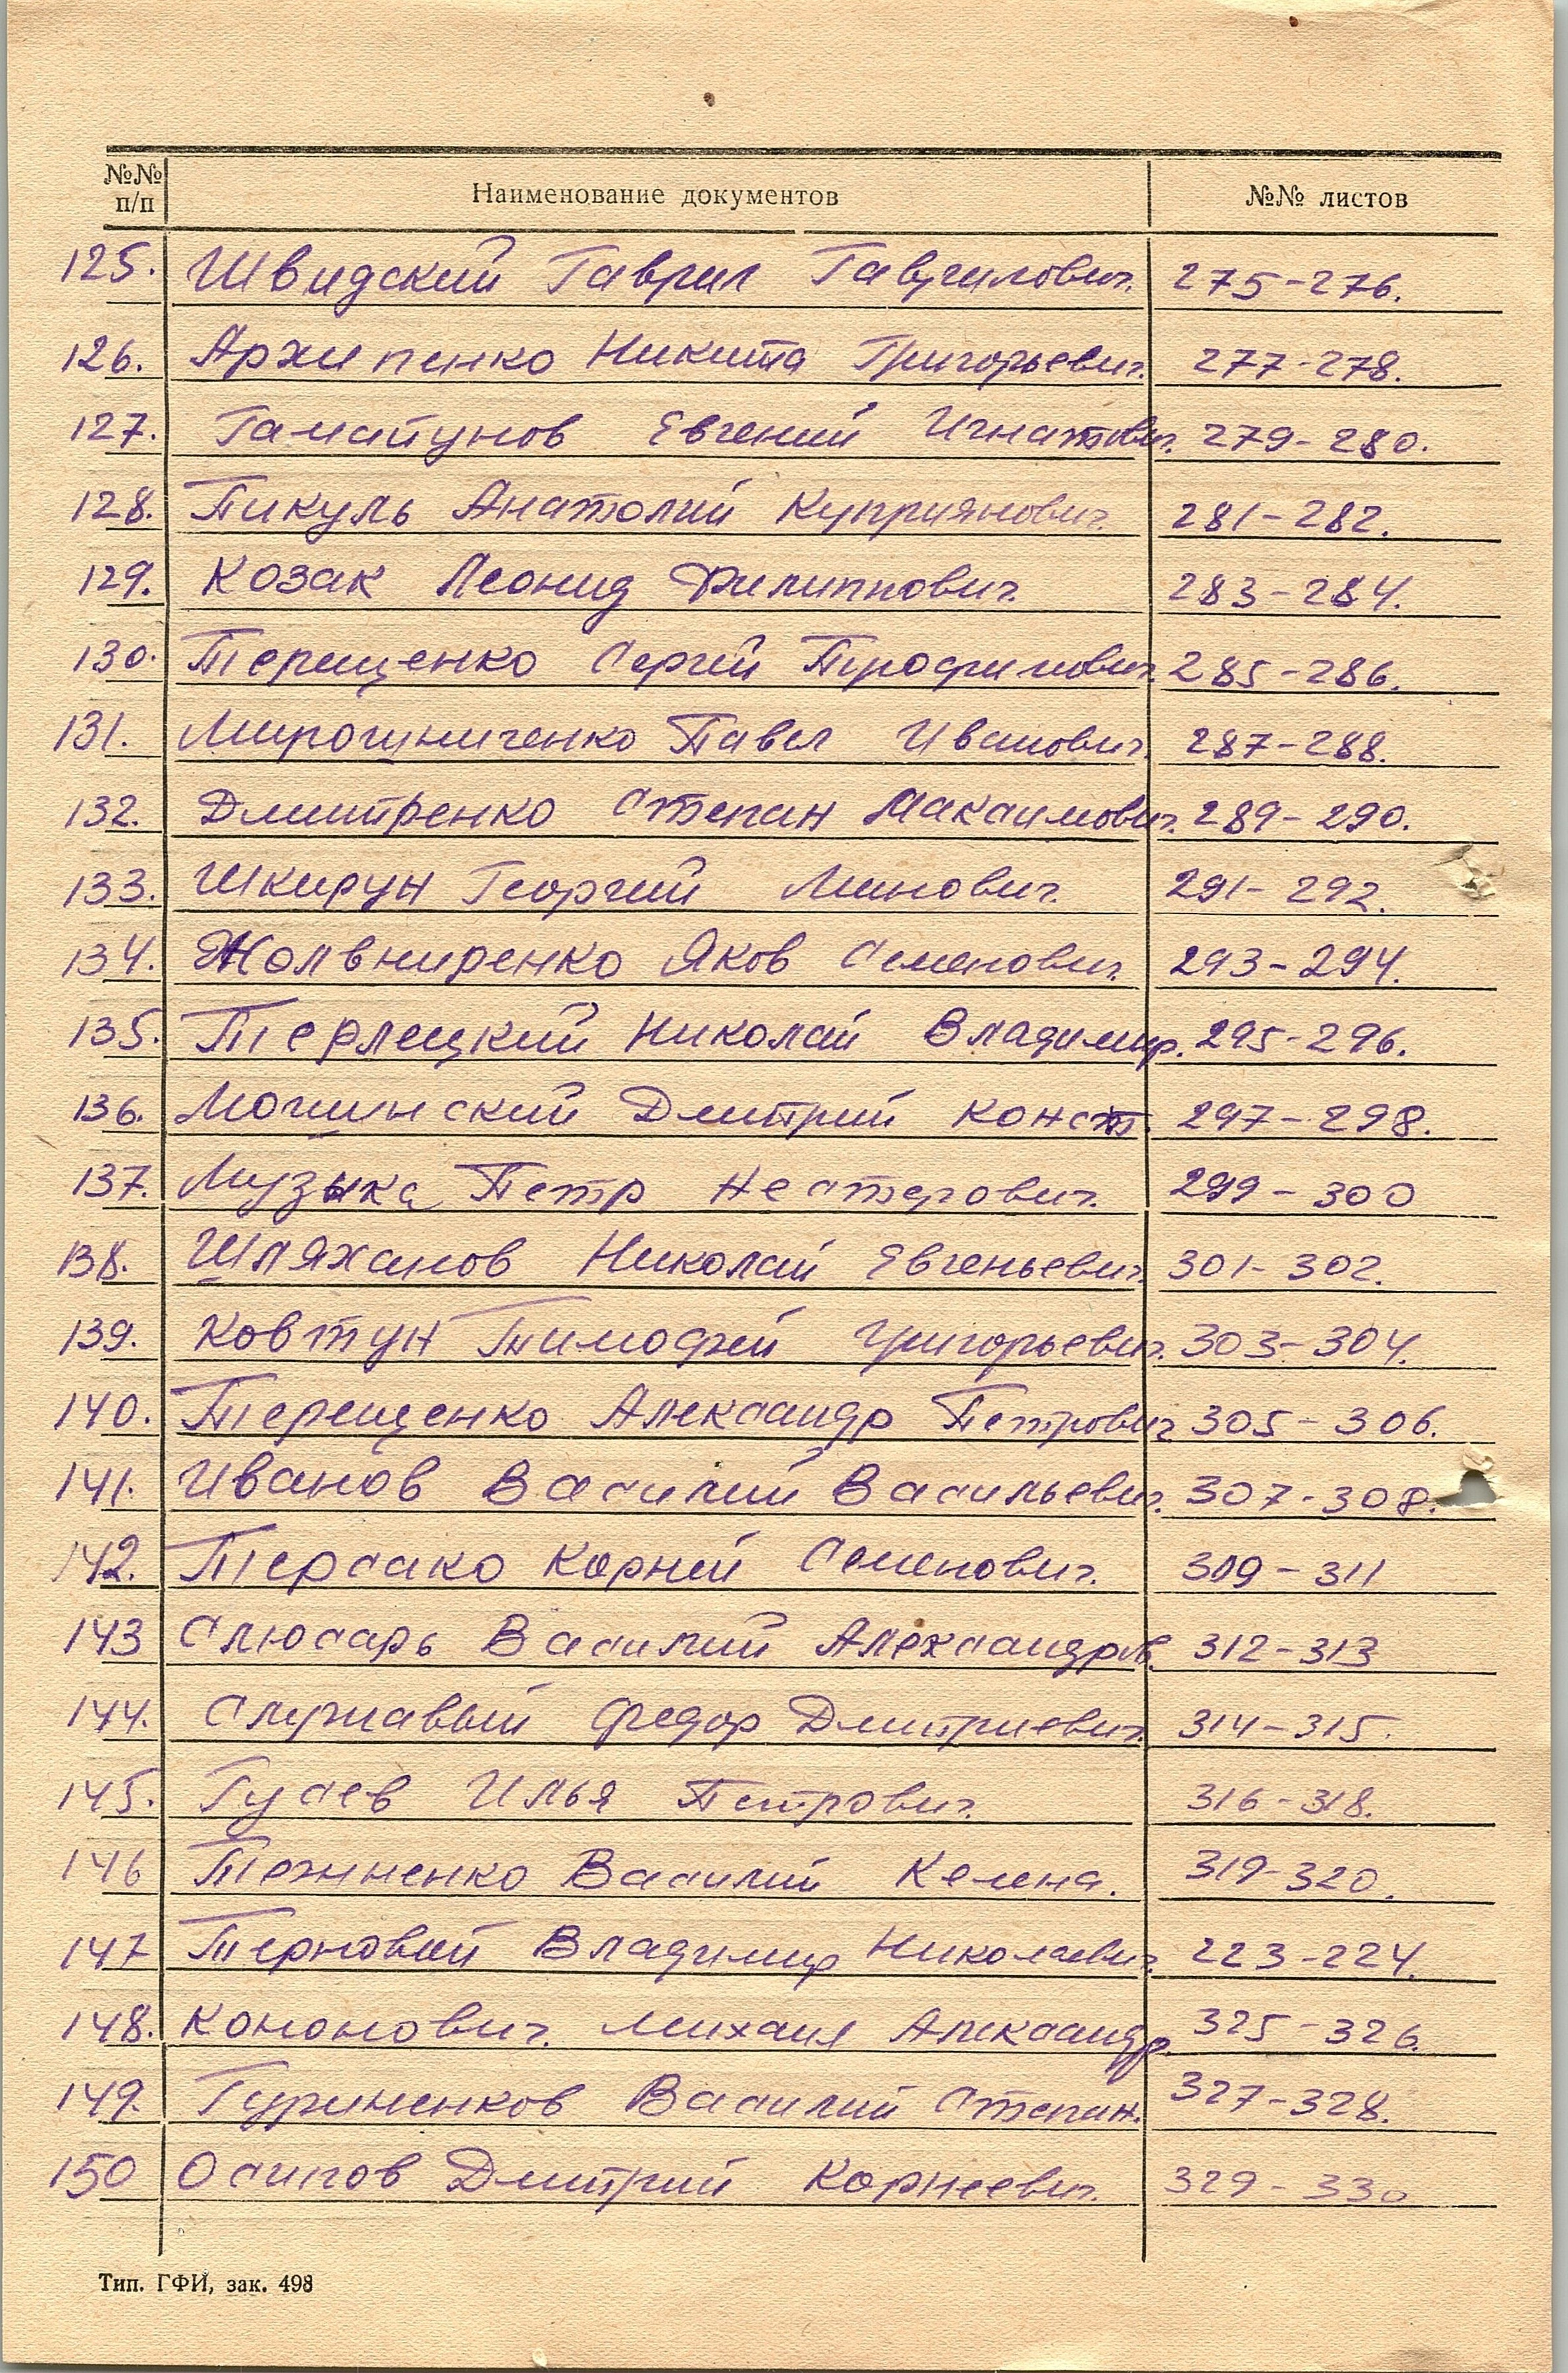 №№ п/п Наименование документов №№ листов
125. Швидский Гаврил Гаврилович. 275-276.
126. Архипенко Никита Григорьевич. 277-278.
127. Евгений Игнатович. 279-280.
128. Пикуль Анатолий Куприянович. 281-282.
129. Козак Леонид Филиппович. 283-284.
130. Терещенко Сергей Трофимович. 285-286.
131. Мирошниченко Павел Иванович. 287-288.
132. Дмитренко Степан Максимович. 289-290.
133. Шкирун Георгий Минович. 291-292.
134. Жолвниренко Яков Семенович. 293-294.
135. Терлецкий Николай Владимир. 295-296.
136. Мошинский Дмитрий Конст. 297-298.
137. Музыка Петр Нестерович. 299-300
138. Шляханов Николай Евгеньевич. 301-302.
139. Ковтун Тимофей Григорьевич. 303-304.
140. Терещенко Александр Петрович 305-306.
141. Иванов Василий Васильевич. 307-308.
142. Терсако Корней Семенович. 309-311
143 Слюсарь Василий Александров. 312-313
144. Служавый Федор Дмитриевич. 314-315.
145. Гусев Илья Петрович. 316-318.
146 Василий 319-320.
147 Терновой Владимир Николаевич. 223-224.
148. Кононович. Михаил Александр. 325-326.
149. Гуриненков Василий Степан. 327-328.
150 Осипов Дмитрий Корнеевич. 329-330
Тип. ГФИ, зак. 498